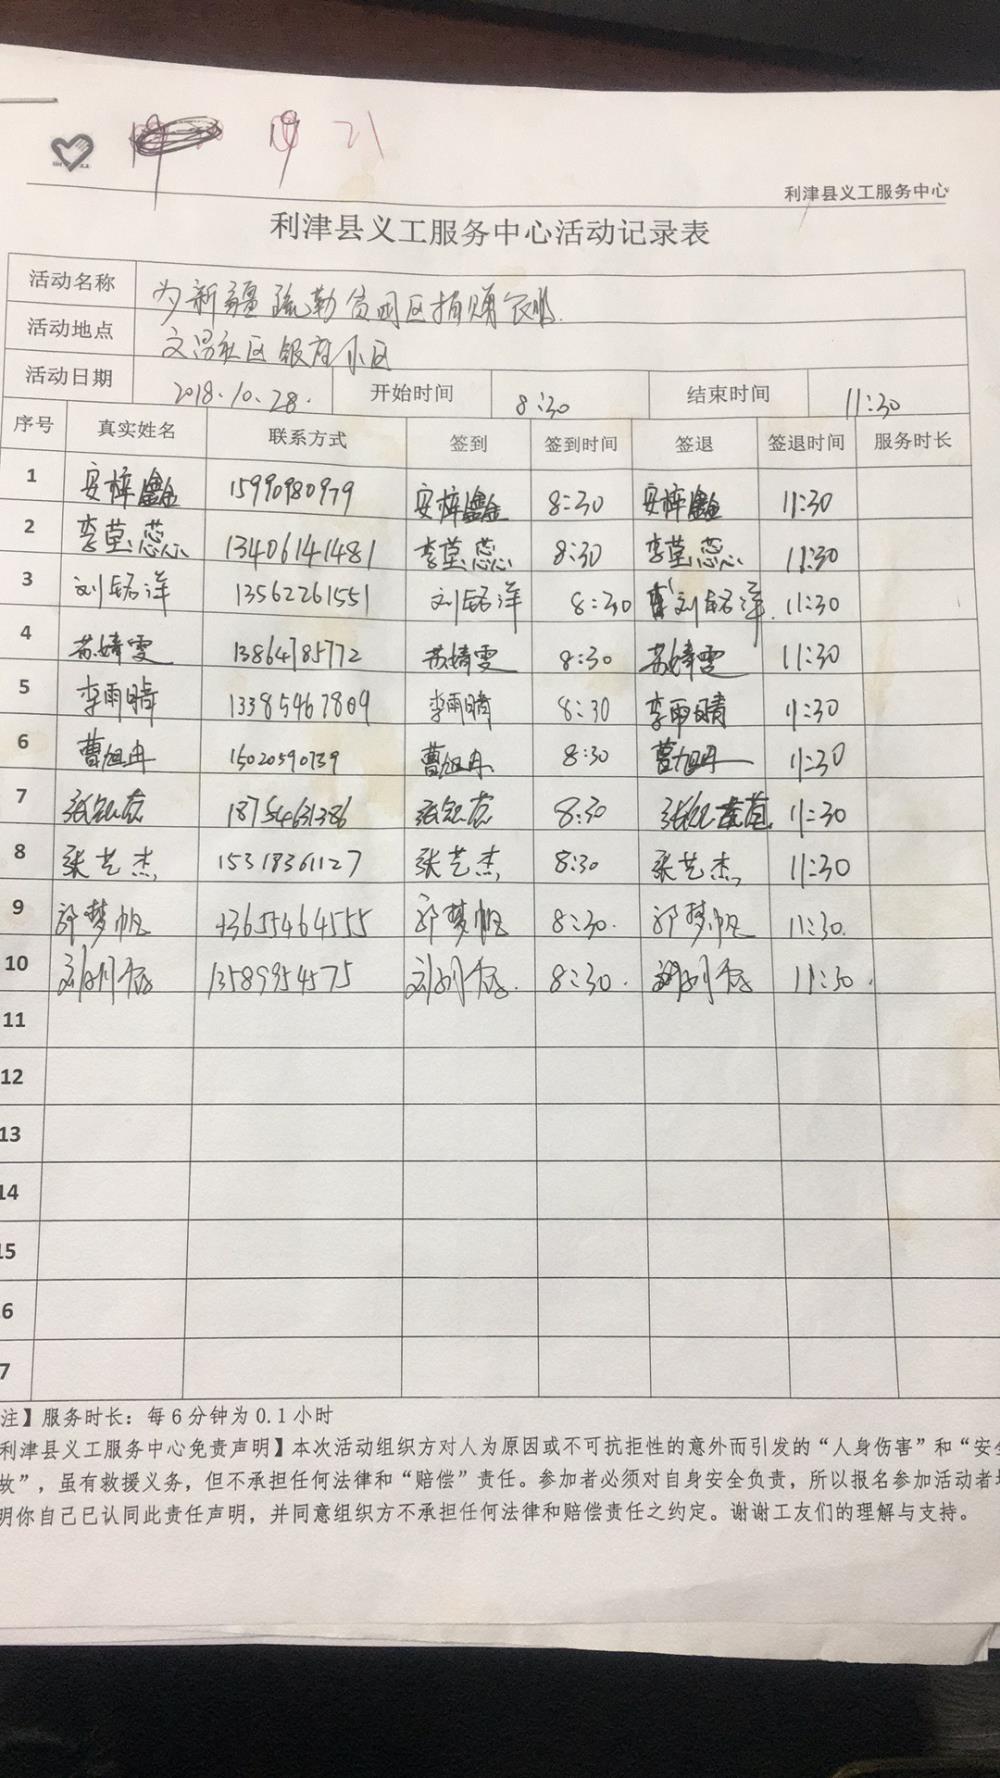 21
利津县义工服务中心
利津县义工服务中心活动记录表
活动名称 为新疆疏勒贫困区捐赠衣服.
活动地点 文昌社区银座小区
活动日期 2018.10.28. 开始时间 8:30 结束时间 11:30
序号 真实姓名 联系方式 签到 签到时间 签退 签退时间 服务时长
1 安梓鑫 15990980979 安梓鑫 8:30 安梓鑫 11:30
2 李莹蕊 13406141481 李莹蕊 8:30 李莹蕊 11:30
3 刘铭洋 13562261551 刘铭洋 8:30 刘铭洋 11:30
4 苏婧雯 13864785772 苏婧雯 8:30 苏婧雯 11:30
5 李雨晴 13385467809 李雨晴 8:30 李雨晴 11:30
6 曹旭冉 15020590739 曹旭冉 8:30 曹旭冉 11:30
7 18754631386 8:30 11:30
8 张艺杰 15318361127 张艺杰 8:30 张艺杰 11:30
9 梦帆 13655464555 梦帆 8:30. 梦帆 11:30.
10 13589954575 8:30. 11:30.
11
12
13
14
15
6
7
注】服务时长：每6分钟为0.1小时
利津县义工服务中心免责声明】本次活动组织方对人为原因或不可抗拒性的意外而引发的“人身伤害”和“安全
故”，虽有救援义务，但不承担任何法律和“赔偿”责任。参加者必须对自身安全负责，所以报名参加活动者
明你自己已认同此责任声明，并同意组织方不承担任何法律和赔偿责任之约定。谢谢工友们的理解与支持。